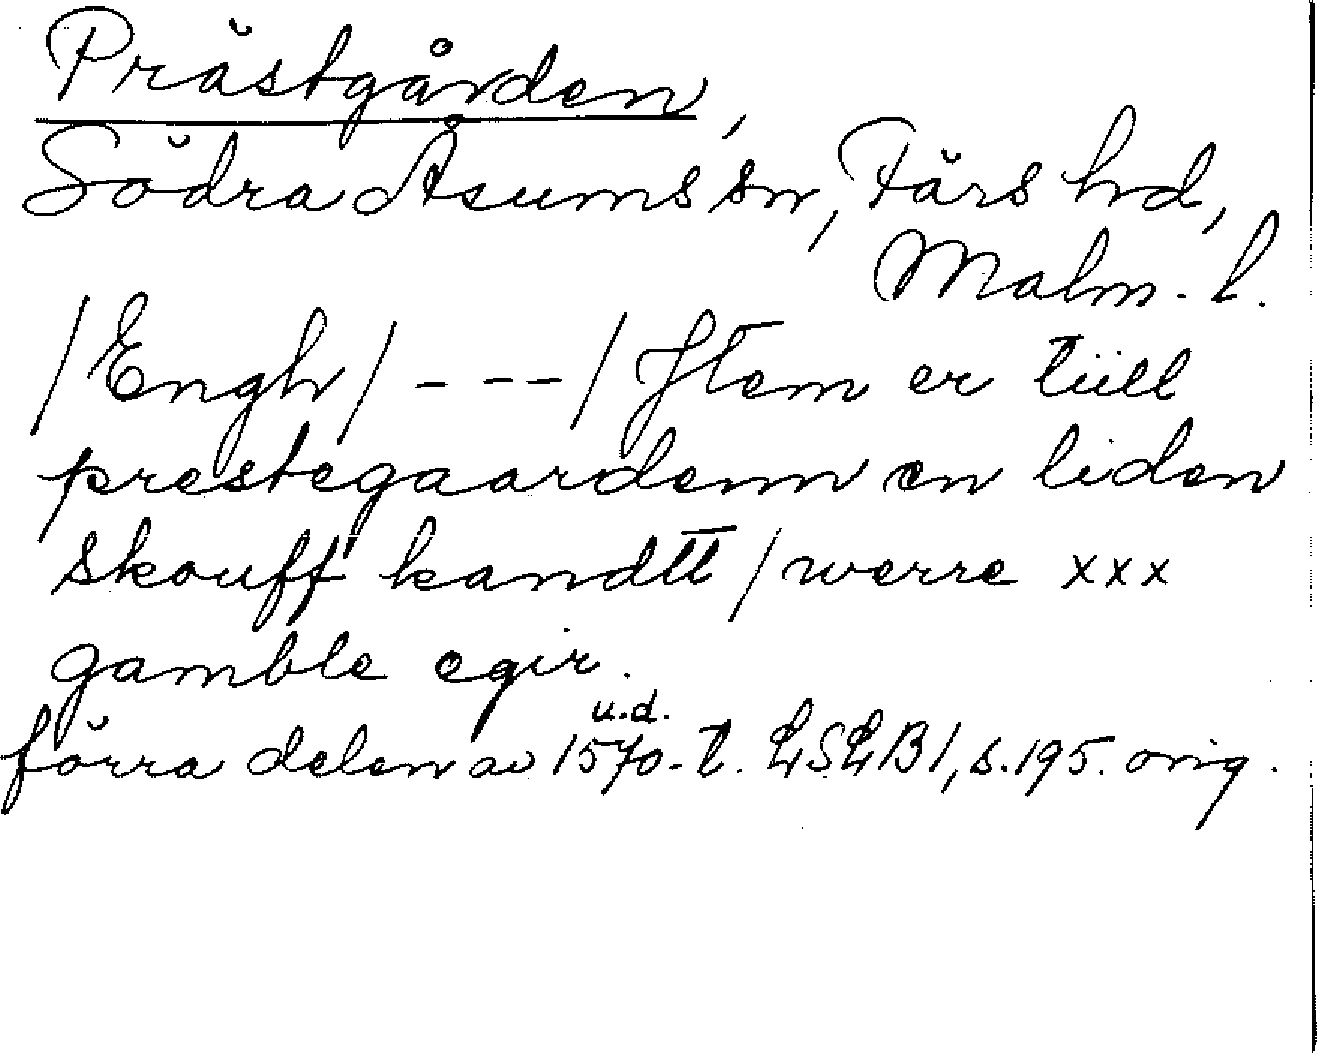 Prästgården,
Södra Åsums sn, Färs hd,
Malm. l.
/Engh/ - - - / Jtem er tiill
prestegaardenn en liden
skouff kandtt / werre xxx
gamble egir.
u.d.
förra delen av 1570-t. LSLB1, s. 195. orig.